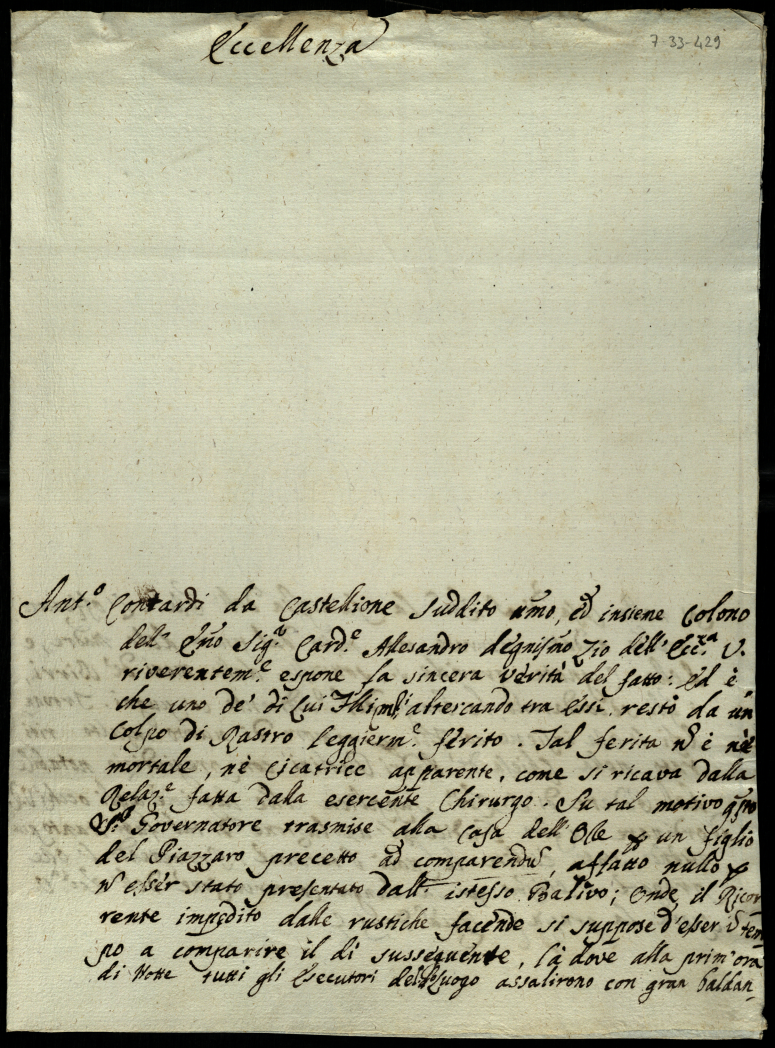 Eccellenza
7-33-429
Ant.o Contardi da Castellione suddito umo, ed insieme Colono
dell' Emo Sig.r Card.e Allesandro degnismo Zio dell' Ecc.za V.
riverentem.e espone la sincera verità del fatto: Ed è
che uno de' di Lui altercando tra Essi restò da un
Colpo di Rastro leggierm.e ferito. Tal ferita ñ è nè
mortale, nè Cicatrice apparente, come si ricava dalla
Relaz.e fatta dalla esercente Chirurgo. Su tal motivo qsto
S.r Governatore trasmise alla Casa dell' Obe p un figlio
del Piazzaro precetto ad comparendū, affatto nullo p
ñ esser stato presentato dall' istesso Balivo; Onde il Ricor
rente impedito dalle rustiche facende si suppose d'esser ĩ tem
po a comparire il dì susseguente, là dove alla prim' ora
di Notte tutti gli Esecutori del luogo assalirono con gran baldan-